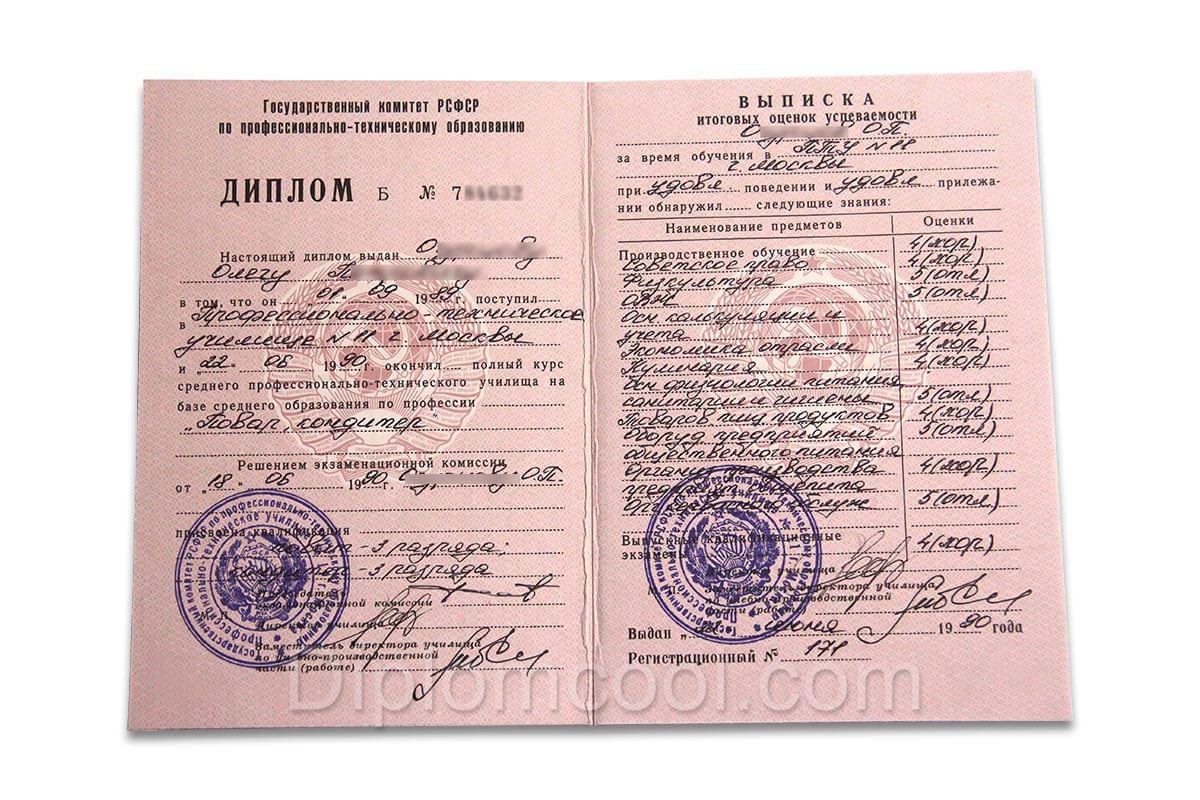 Государственный комитет РСФСР
по профессионально-техническому образованию
ДИПЛОМ Б № 7
Настоящий диплом выдан
Олегу
в том, что он 01 " 09 1989 г. поступил
в Профессионально техническое
училище N 11 г. Москвы
и "22" 06 1990 г. окончил полный курс
среднего профессионально-технического училища на
базе среднего образования по профессии
"Повар, кондитер"
Решением экзаменационной комиссии
от "18" 06 1990 О.П.
присвоена квалификация
повар - 3 разряда;
кондитер - 3 разряда
Председатель
экзаменационной комиссии
Директор училища
Заместитель директора училища
по учебно-производственной
части (работе)
ВЫПИСКА
итоговых оценок успеваемости
О.П.
за время обучения в ПТУ N 11
г. Москвы
при удовл. поведении и удовл. прилежа-
нии обнаружил следующие знания:
Наименование предметов Оценки
Производственное обучение 4 (хор.)
Советское право 4 (хор.)
Физкультура 5 (отл.)
5 (отл.)
осн. калькуляции и
учета 4 (хор.)
Экономика отрасли 4 (хор.)
Кулинария 4 (хор.)
осн. физиологии питания,
санитарии и гигиены 5 (отл.)
Товаров. пищ. продуктов 4 (хор.)
оборуд. предприятий 5 (отл.)
общественного питания
Органи. производства 4 (хор.)
5 (отл.)
Выпускные квалификационные
экзамены 4 (хор.)
Директор училища
Заместитель директора училища
по учебно-производственной
части (работе)
Выдан июня 1990 года
Регистрационный № 171
Diplomcool.com